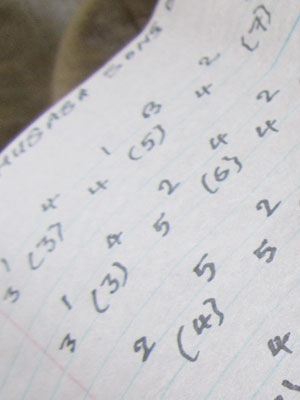 SONS
1 4 1 3 2
3 (3) 4 (5) 4 (7)
1 4 2 4 2
3 (3) 5 (6) 4
5 2
2 (4) 5
4